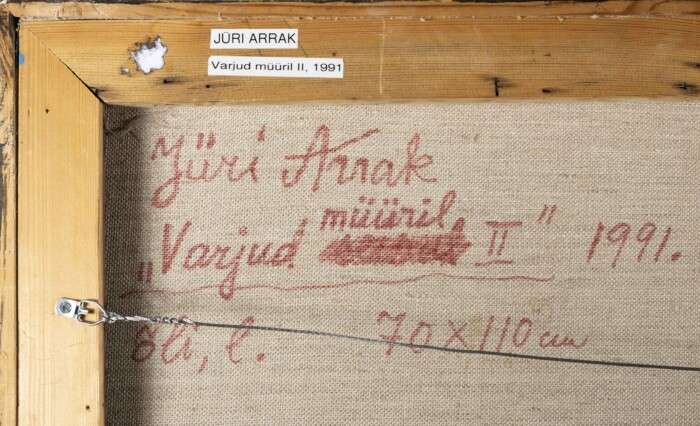 JÜRI ARRAK
Varjud müüril II, 1991
Jüri Arrak
„Varjud müüril II” 1991.
õli, l. 70×110 cm